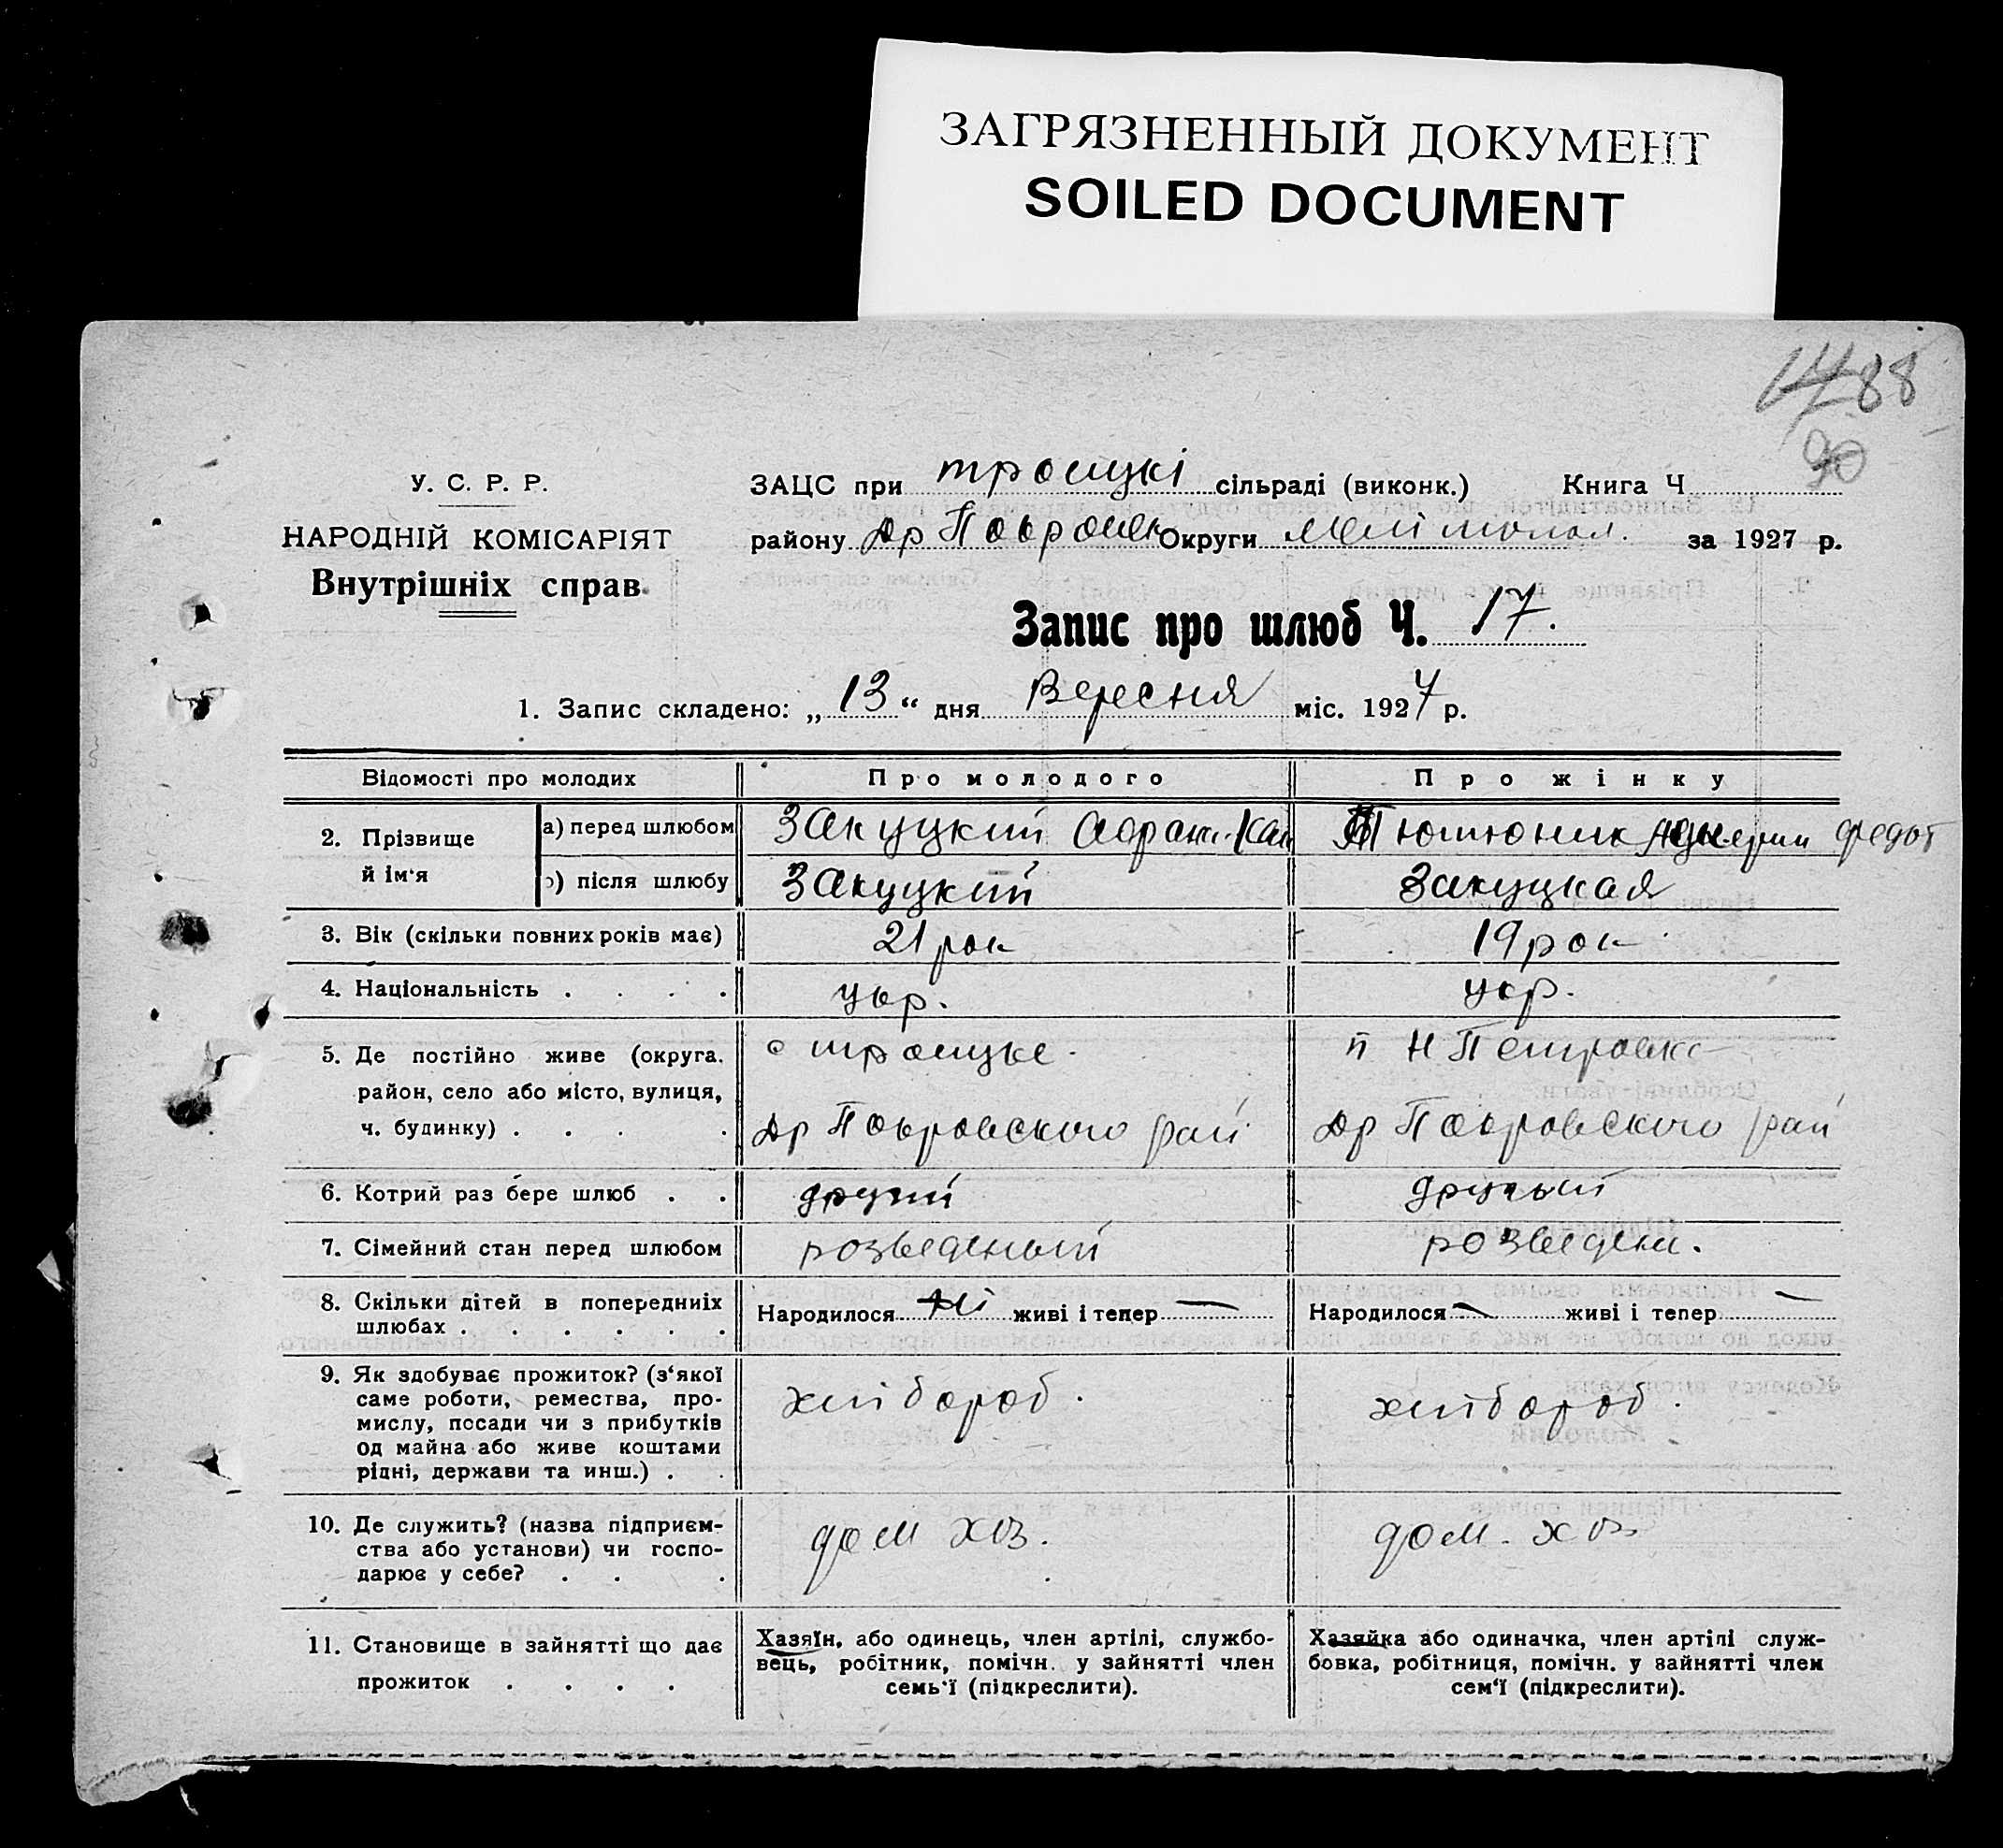 ЗАГРЯЗНЕННЫЙ ДОКУМЕНТ
SOILED DOCUMENT
88
90
У. С. Р. Р.
НАРОДНІЙ КОМІСАРІЯТ
Внутрішніх справ
ЗАЦС при троицкі сільраді (виконк.) Книга Ч.
району Округи за 1927 р.
Запис про шлюб Ч. 17.
1. Запис складено: „13“ дня Вересня міс. 1927 р.
Відомості про молодих Про молодого Про жінку
2. Прізвище й ім‘я
а) перед шлюбом Закуцкий Тютюник Федот
б) після шлюбу Закуцкий Закуцкая
3. Вік (скільки повних років має) 21 рок 19 рок
4. Національність . . . . укр. укр.
5. Де постійно живе (округа, с троицке. п Н Петровка
район, село або місто, вулиця,
ч. будинку) . . . . Др Покровского рай Др Покровского рай
6. Котрий раз бере шлюб . . другий другый
7. Сімейний стан перед шлюбом розведеный розведена.
8. Скільки дітей в попередніх Народилося ні живі і тепер — Народилося — живі і тепер —
шлюбах . . . . . .
9. Як здобуває прожиток? (з‘якої
саме роботи, ремества, про- хлібороб. хлібороб.
мислу, посади чи з прибутків
од майна або живе коштами
рідні, держави та инш.) . .
10. Де служить? (назва підприєм- дом хоз. дом. хоз
ства або установи) чи госпо-
дарює у себе? . . .
11. Становище в зайнятті що дає Хазяїн, або одинець, член артілі, службо- Хазяйка або одиначка, член артілі служ-
вець, робітник, помічн. у зайнятті член бовка, робітниця, помічн. у зайнятті член
прожиток . . . . семь‘ї (підкреслити). сем‘ї (підкреслити).